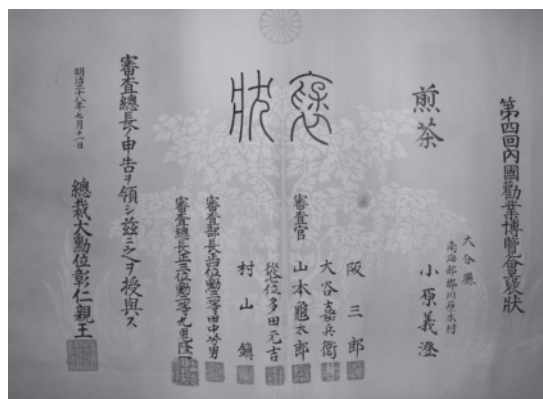 第四回內國勸業博覽會褒狀
大分縣
南海部郡川原木村
小原義澄
煎茶
褒狀
審査官
阪三郎
大谷嘉兵衞
山本龜太郎
從七位多田元吉
村山鎮
審査部長正七位勳六等田中芳男
審査總長正三位勳三等九鬼隆一
審査總長ノ申告ヲ領シ茲ニ之ヲ授與ス
明治二十八年七月十一日
總裁大勳位彰仁親王